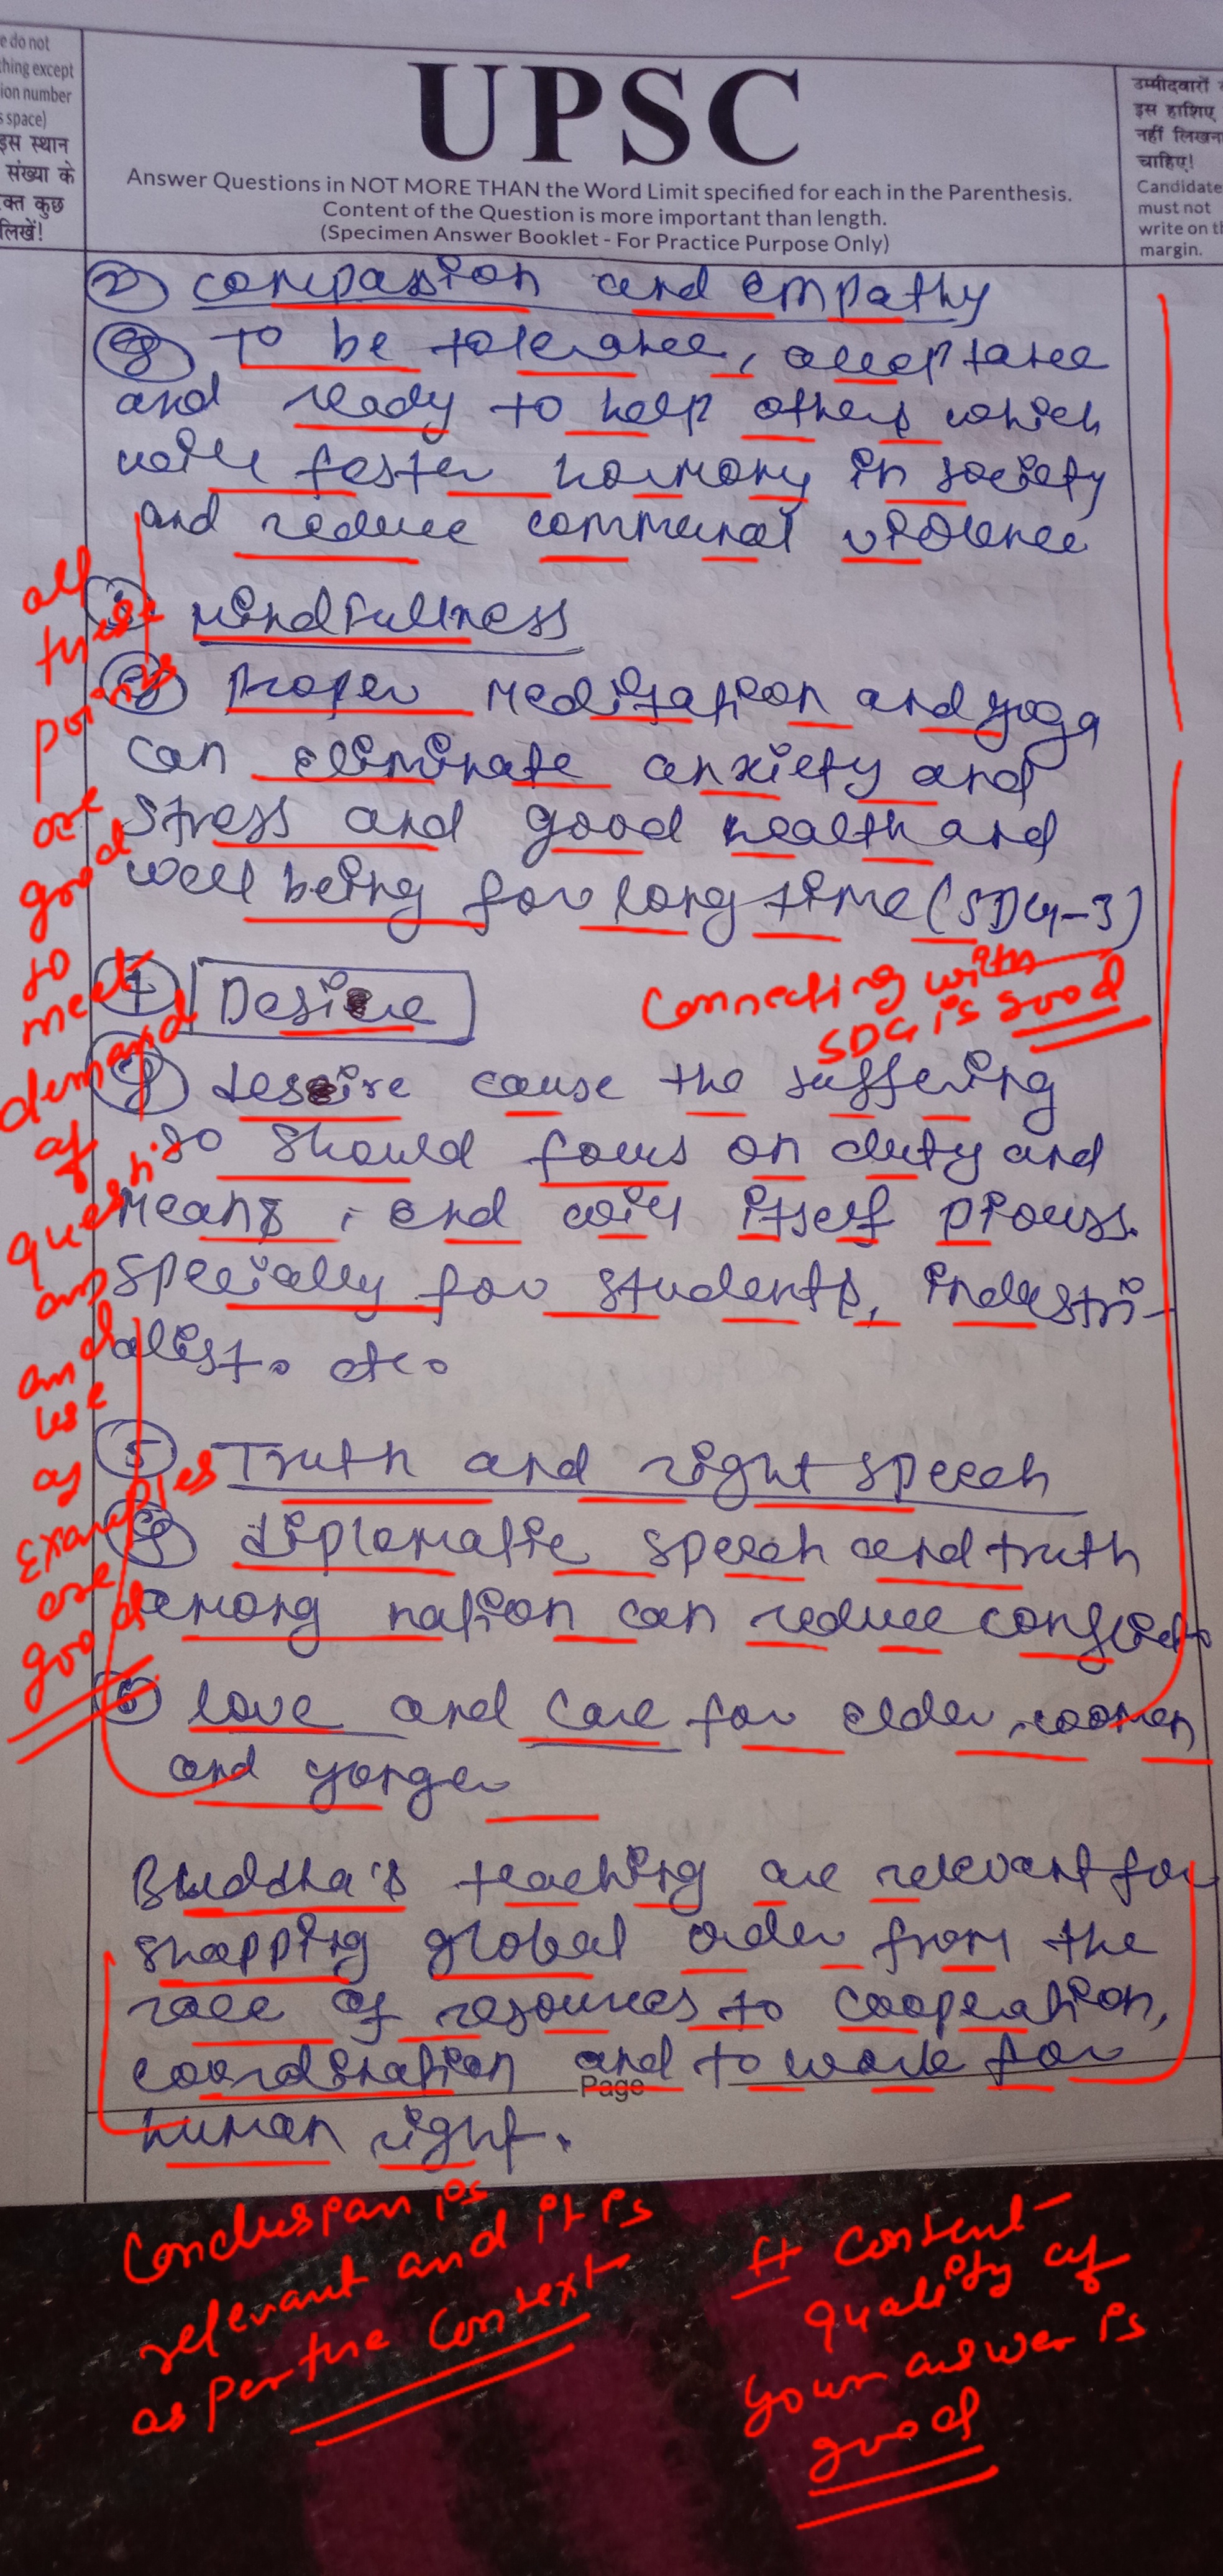 e do not
thing except
ion number
s space)
इस स्थान
संख्या के
क्त कुछ
लिखें!
UPSC
Answer Questions in NOT MORE THAN the Word Limit specified for each in the Parenthesis.
Content of the Question is more important than length.
(Specimen Answer Booklet - For Practice Purpose Only)
उम्मीदवारों
इस हाशिए
नहीं लिखना
चाहिए!
Candidate
must not
write on th
margin.
② compassion and empathy
eg To be tolerance, acceptance
and ready to help others which
will foster harmony in society
and reduce communal violence
③ Mindfullness
eg Proper meditation and yoga
can eliminate anxiety and
stress and good health and
well being for long time (SDG-3)
Connecting with
SDG is good
④ Desire
eg desire cause the suffering
so should focus on duty and
means, end will itself pious.
specially for students, industri-
alist. etc.
⑤ Truth and right speech
eg diplomatic speech and truth
among nation can reduce conflict.
⑥ love and care for elder, women
and yonger
all
these
points
are
good
to
meet
demand
of
questi
ons
and
use
of
Examples
are
good
Buddha's teaching are relevant for
shapping global order from the
race of resources to cooperation,
coordination and to work for
Page
human right.
Conclusion is
relevant and it is
as per the Context
# Content-
quality of
your answer is
good